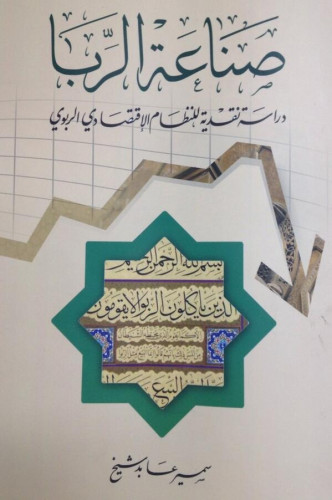 صناعة الرِّبا
دراسة نقدية للنظام الإقتصادي الربوي
بسم الله الرحمن الرحيم
الذين يأكلون الربوا لا يقومون
سمير عابد شيخ